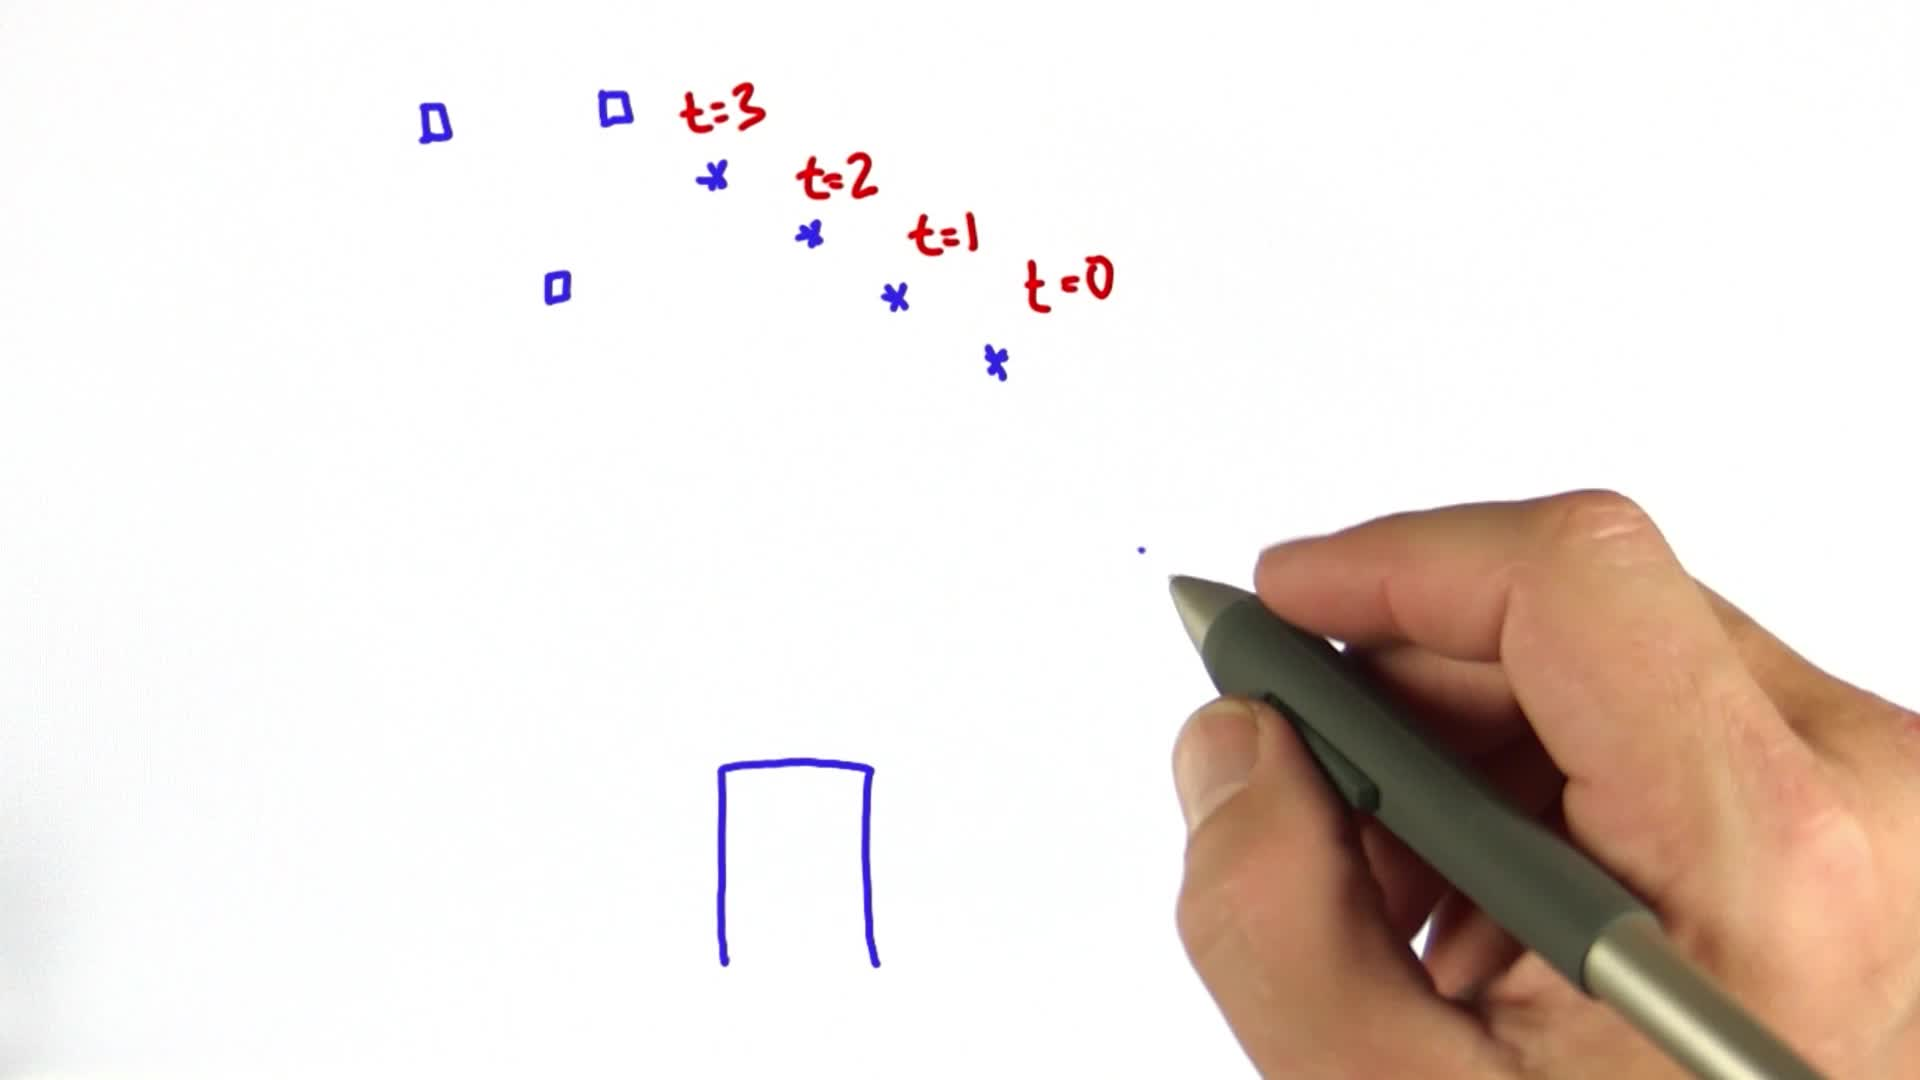 t=3
t=2
t=1
t=0